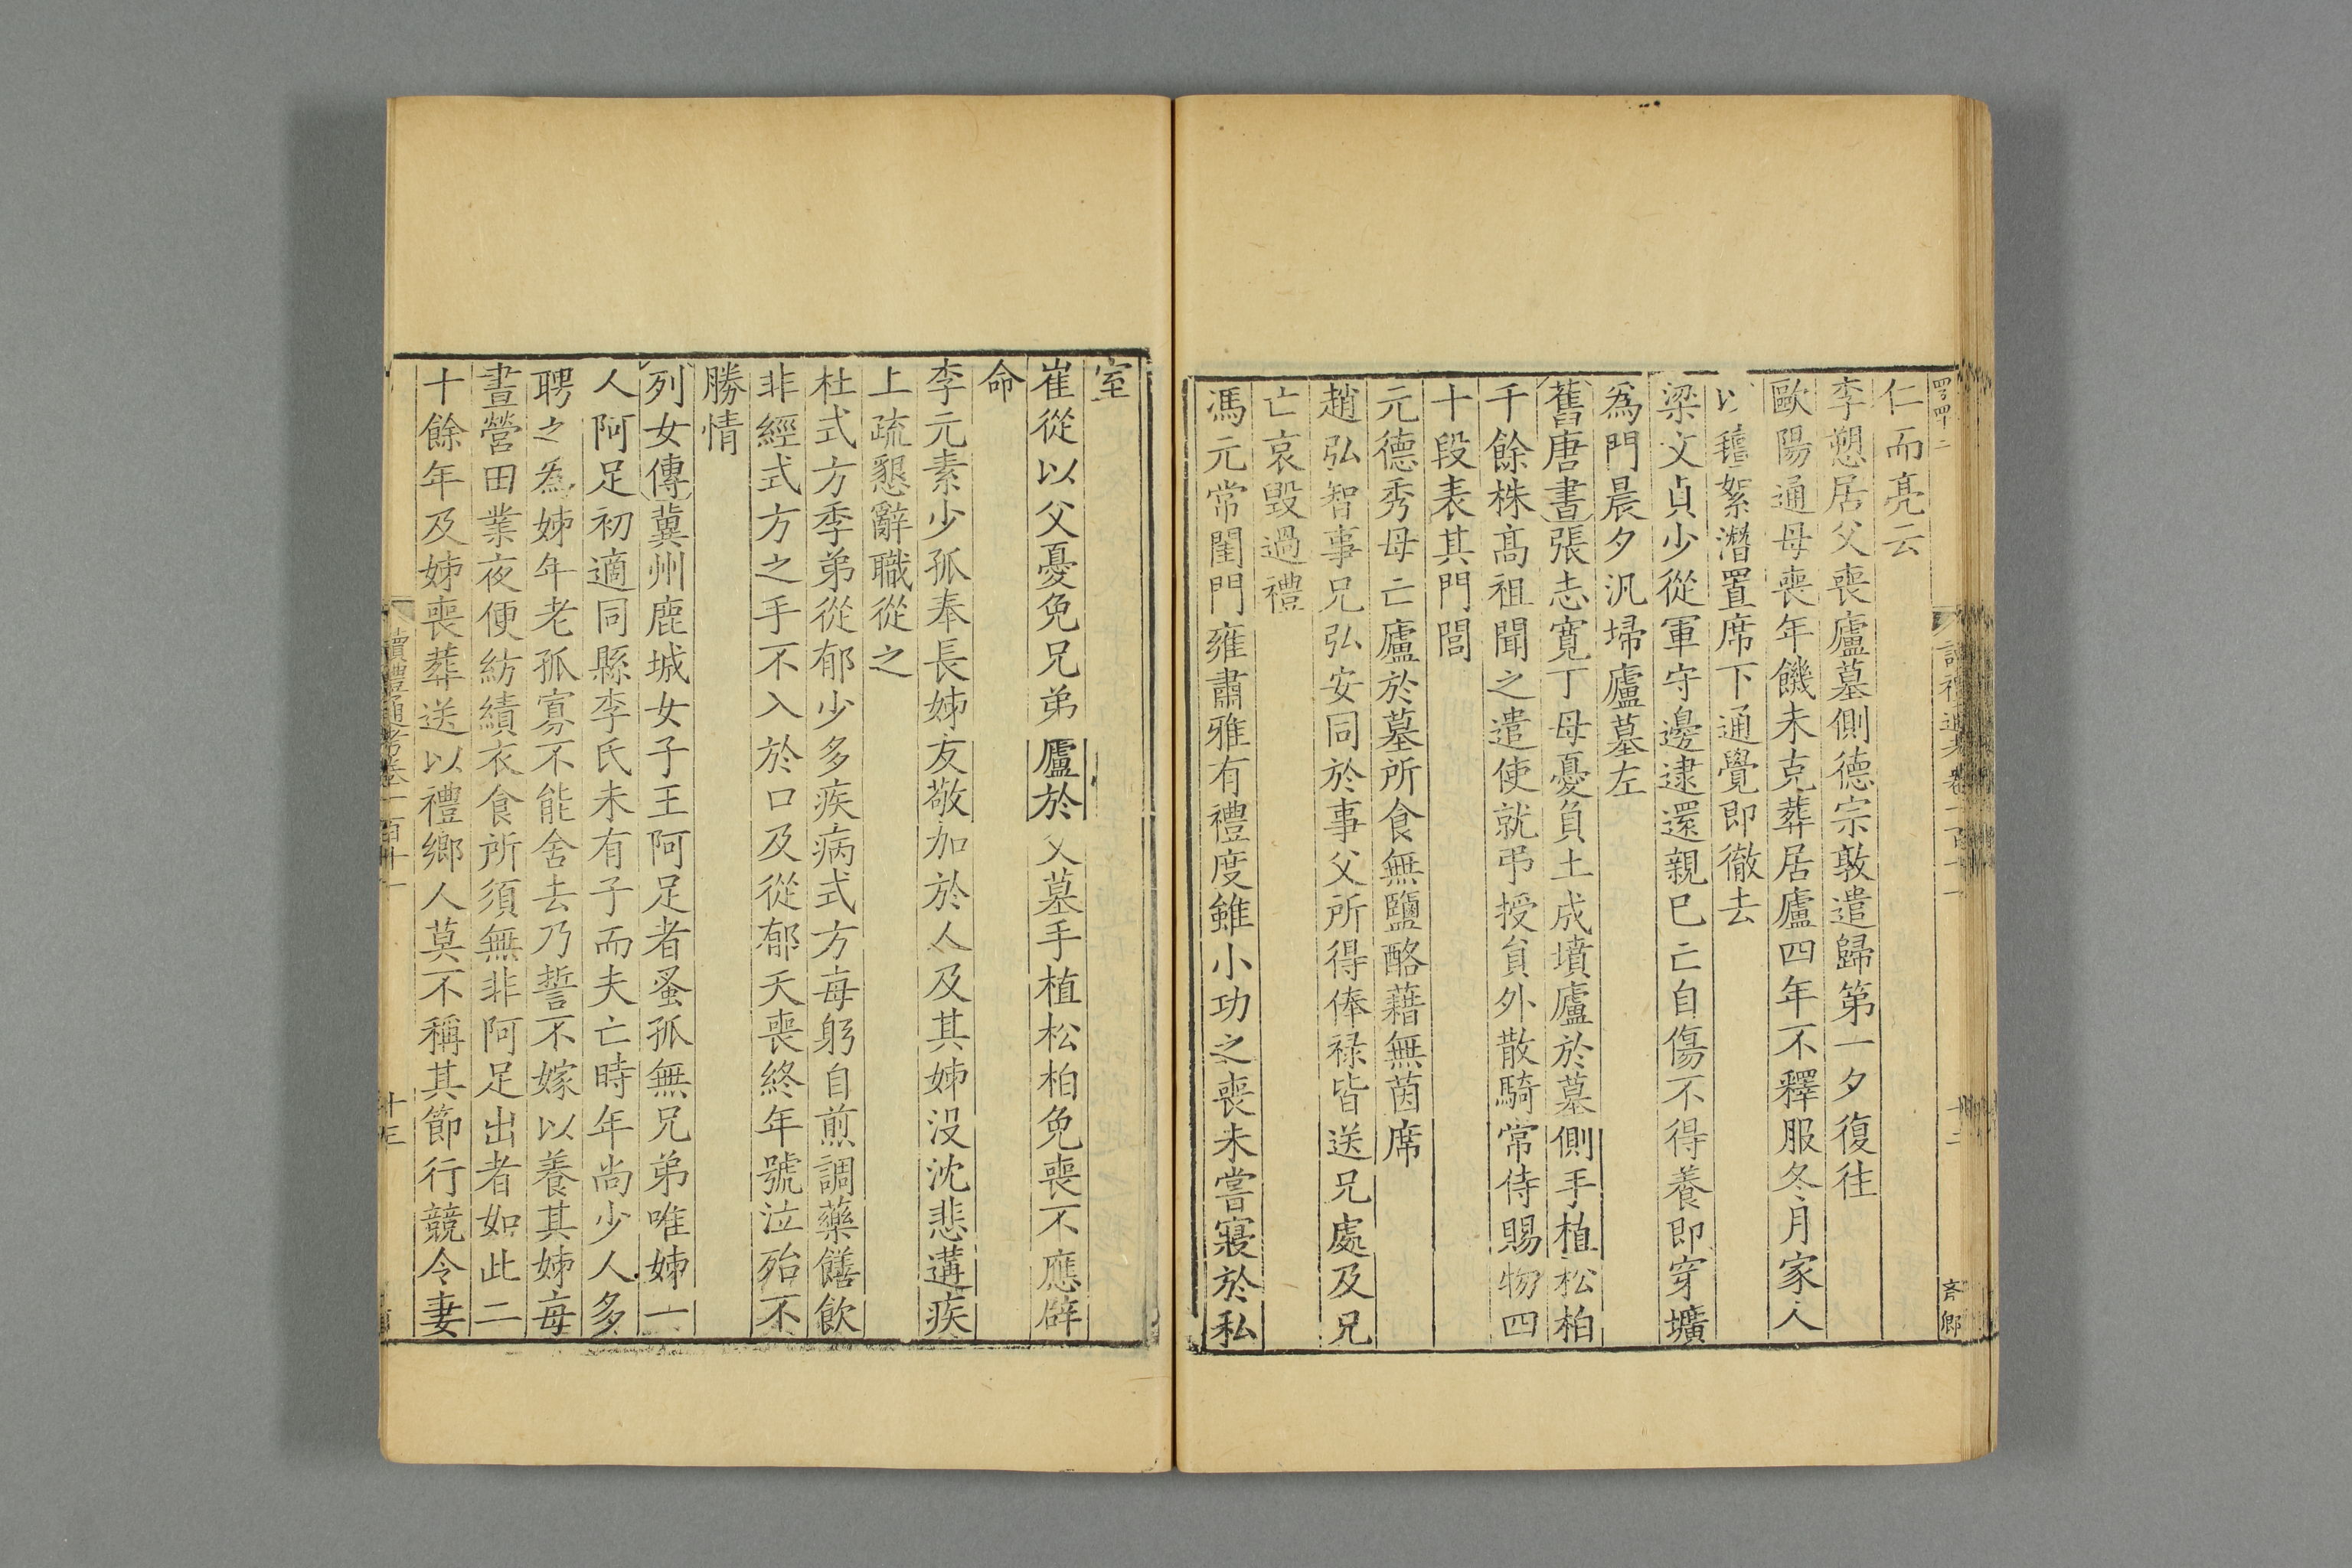 仁而亮云
李愬居父喪廬墓側德宗敦遣歸第一夕復往
歐陽通母喪年饑未克葬居廬四年不釋服冬月家人
以氊絮潛置席下通覺即徹去
梁文貞少從軍守邊逮還親已亡自傷不得養即穿壙
為門晨夕汎埽廬墓左
舊唐書張志寬丁母憂負土成墳廬於墓側手植松柏
千餘株高祖聞之遣使就弔授貟外散騎常侍賜物四
十段表其門閭
元德秀母亡廬於墓所食無鹽酪藉無茵席
趙弘智事兄弘安同於事父所得俸祿皆送兄處及兄
亡哀毀過禮
馮元常閨門雍肅雅有禮度雖小功之喪未嘗寢於私
室
崔從以父憂免兄弟廬於父墓手植松柏免喪不應辟
命
李元素少孤奉長姊友敬加於人及其姊没沈悲遘疾
上疏懇辭職從之
杜式方季弟從郁少多疾病式方每躬自煎調藥饍飲
非經式方之手不入於口及從郁夭喪終年號泣殆不
勝情
列女傳冀州鹿城女子王阿足者蚤孤無兄弟唯姊一
人阿足初適同縣李氏未有子而夫亡時年尚少人多
聘之為姊年老孤寡不能舍去乃誓不嫁以養其姊每
晝營田業夜便紡績衣食所須無非阿足出者如此二
十餘年及姊喪葬送以禮鄉人莫不稱其節行競令妻
讀禮通考卷一百十一
十三